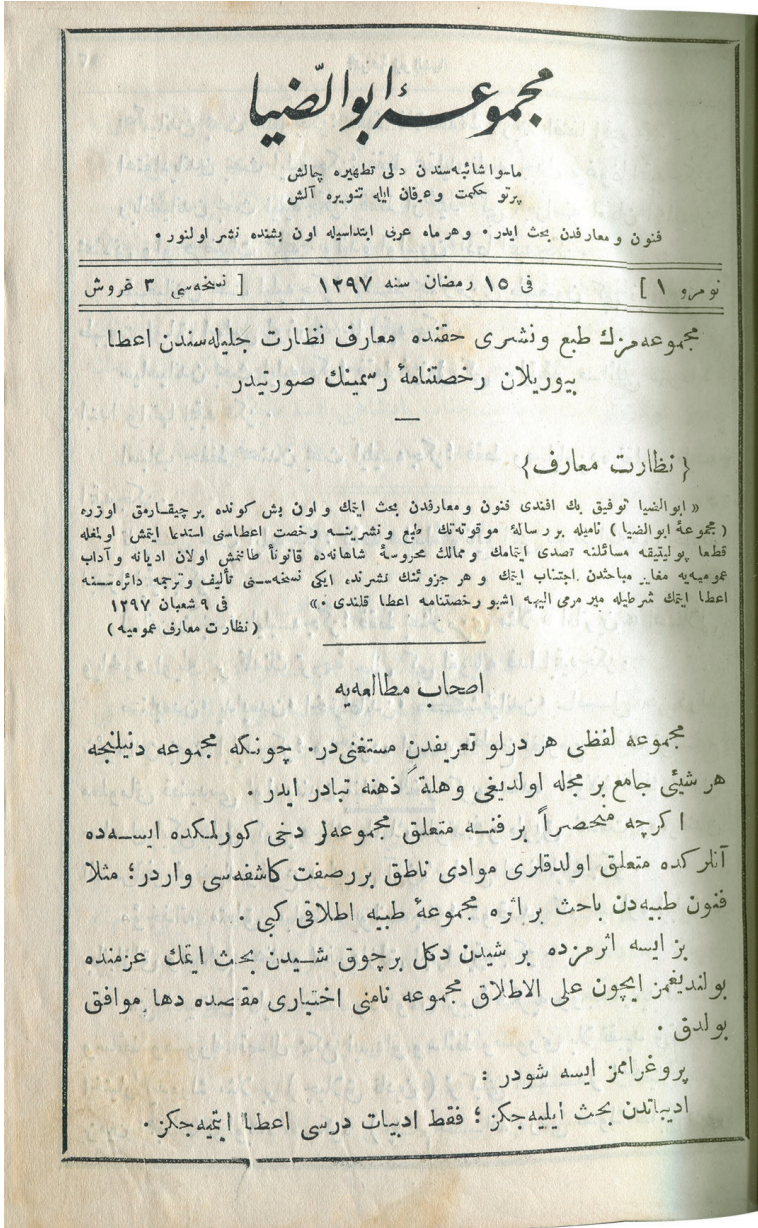 مجموعۀ ابوالضّیا
ماسوا شائبه‌سندن دلی تطهیره چالش
پرتو حکمت وعرفان ایله تنویره آلش
فنون ومعارفدن بحث ایدر. وهر ماه عربی ابتداسیله اون بشنده نشر اولنور.
نومرو ۱] فی ۱۵ رمضان سنه ۱۲۹۷ [نسخه‌سی ۳ غروش
مجموعه‌مزك طبع ونشری حقنده معارف نظارت جلیله‌سندن اعطا
بیوریلان رخصتنامۀ رسمینك صورتیدر
{نظارت معارف}
« ابوالضیا توفیق بك افندی فنون ومعارفدن بحث ایتمك واون بش کونده بر چیقارمق اوزره
(مجموعۀ ابوالضیا) نامیله بر رسالۀ موقوته‌نك طبع ونشرینه رخصت اعطاسنی استدعا ایتمش اولمغله
قطعا پولیتیقه مسائلنه تصدی ایتمامك وممالك محروسۀ شاهانه‌ده قانوناً طانتمش اولان ادیانه وآداب
عمومیه‌یه مغایر مباحثدن اجتناب ایتمك وهر جزؤنك نشرنده ایکی نسخه‌سنی تألیف وترجمه دائره‌سنه
اعطا ایتمك شرطیله میر مرمی الیهه اشبو رخصتنامه اعطا قلندی.» فی ۹ شعبان ۱۲۹۷
(نظارت معارف عمومیه)
اصحاب مطالعه‌یه
مجموعه لفظی هر درلو تعریفدن مستغنی‌در. چونکه مجموعه دنیلنجه
هر شیئی جامع بر مجله اولدیغی وهلةً ذهنه تبادر ایدر.
اکرچه منحصراً بر فنه متعلق مجموعه‌لر دخی کورلمکده ایسه‌ده
آنلرکده متعلق اولدقلری موادی ناطق بر صفت کاشفه‌سی واردر؛ مثلا
فنون طبیه‌دن باحث بر اثره مجموعۀ طبیه اطلاقی کبی.
بز ایسه اثرمزده بر شیدن دکل برچوق شیدن بحث ایتمك عزمنده
بولندیغمز ایچون علی الاطلاق مجموعه نامنی اختیاری مقصده دها موافق
بولدق.
پروغرامز ایسه شودر:
ادبیاتدن بحث ایلیه‌جکز؛ فقط ادبیات درسی اعطا ایتمیه‌جکز.